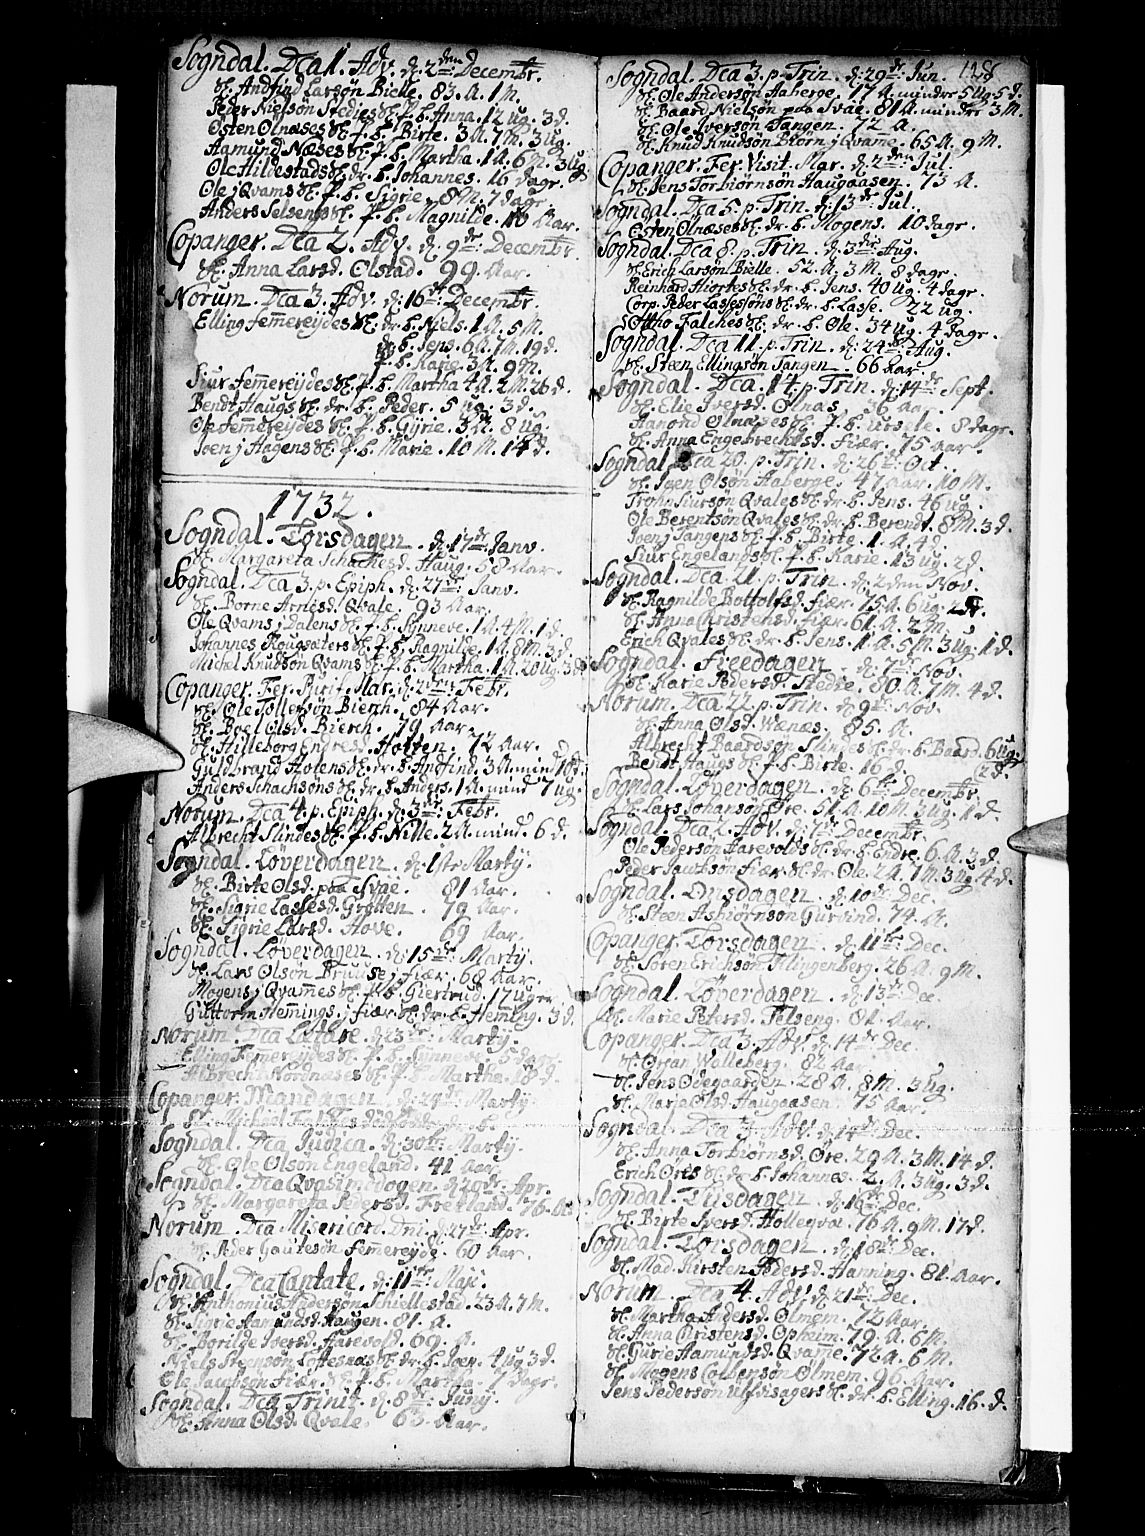 Sogndal. Dca 1. Adv. d. 2den Decembr.
Sl. Andfind Larsøn Bielle. 83. A. 1 M.
Peder Nielsøn Stedies Sl. P. b. Anna. 12 ug. 3 d.
Østen Ølnæses Sl. P. b. Birte. 3 A. 7 M. 3 ug.
Aamund Næses Sl. P. b. Martha. 1 A. 6 M. 3 ug.
Ole Hildestads Sl. dr. b. Johannes. 16 dagr.
Ole j Qvams Sl. P. b. Sigrie. 8 M. 7 dagr.
Anders Selsengs Sl. P. b. Magnilde. 10 Aar.
Copanger. Dca 2. Adv. d. 9de Decembr.
Sl. Anna Larsd. Olstad. 99 Aar.
Norum. Dca 3. Adv. d. 16de Decembr.
Elling femereydes Sl. dr. b. Niels. 1 A. 5 M.
dr. b. Jens. 6 A. 7 M. 19 d.
P. b. Karie. 3 A. 9 M.
Siur femereydes Sl. P. b. Martha 4 A. 2 M. 26 d.
Bendt Haugs Sl. dr. b. Peder. 5 ug. 3 d.
Ole femereydes Sl. P. b. Gyrie. 3 A. 8 ug.
Joen j Hagens Sl. P. b. Marie. 10 M. 14 d.
1732.
Sogndal. Torsdagen. d. 17de Janv.
Sl. Margareta Schachesd. Haug. 58 Aar.
Sogndal. Dca 3. p. Epiph. d. 27de Janv.
Sl. Borne Arnesd. Qvale. 93 Aar.
Ole Qvams j dalens Sl. P. b. Synneve. 1 A. 4 M. 1 d.
Johannes Rougsæters Sl. P. b. Ragnilde. 1 A. 8 M. 3 d.
Michel Knudsøn Qvams Sl. P. b. Martha. 1 A. 20 ug. 3 d.
Copanger. Fer. Purif. Mar. d. 2den Febr.
Sl. Ole Tollefsøn Bierch. 84 Aar.
Sl. Boel Olsd. Bierch. 79 Aar.
Sl. Hilleborg Endresd. Hotten. 72 Aar.
Guldbrand Holens Sl. dr. b. Andfind. 3 A. mind 18 d.
Anders Schachsons Sl. dr. b. Anders. 1 A. mind 7 ug.
Norum. Dca 4. p. Epiph. d. 3de Febr.
Albrecht Slindes Sl. P. b. Nille. 2 A. mind. 6 d.
Sogndal. Løverdagen. d. 1ste Martij.
Sl. Birte Olsd. paa Svae. 81 Aar.
Sl. Sigrie Lassesd. Grotten. 79 Aar.
Sl. Sigrie Larsd. Hove. 69 Aar.
Sogndal. Løverdagen. d. 15de Martij.
Sl. Lars Olsøn j fiær. 68 Aar.
Mogens j Qvames Sl. P. b. Giertrud. 17 uger
Guttorm Hemings j fiær Sl. dr. b. Heming. 3 d.
Norum. Dca Lætare. d. 23de Martij.
Elling Femereydes Sl. P. b. Synneve. 5 dagr.
Albrecht Nordnæses Sl. P. b. Martha. 18 d.
Copanger. Mandagen. d. 24de Martij.
Sogndal. Dca Judica. d. 30te Martij.
Sl. Ole Olsøn Engeland. 41 Aar.
Sogndal. Dca Qvasimodogen. d. 20de Apr.
Sl. Margareta Pedersd. Fretland. 76. Aar
Norum. Dca Misericord. Dni. d. 27de Apr.
Sl. Peder Gautesøn femereyde. 60 Aar.
Sogndal. Dca Cantate. d. 11te Maji.
Sl. Anthonius Andersøn Schiellestad. 23 A. 7 M.
Sl. Sigrie Aamundsd. Haugen. 81. A.
Sl. Borilde Iversd. Aarevold. 69. A.
Niels Steensøn Loftesnæs Sl. dr. b. Joen. 4 ug. 3 d.
Ele Jacobsøn fiær. Sl. P. b. Martha. 7 Dagr.
Sogndal. Dca Trinit. d. 8de Junij.
Sl. Anna Olsd. Qvale. 63 Aar.
128
Sogndal. Dca 3. p. Trin. d. 29de Jun.
Sl. Ole Andersøn Aaberge. 77 A. minder 5 ug. 5 d.
Sl. Baard Nielsøn paa Svae. 81 A. minder 3 M.
Sl. Ole Iversøn Tangen. 72 A.
Sl. Knud Knudsøn Biørn j Qvame. 65 A. 9 M.
Copanger. Fer. Visit. Mar. d. 2den Jul.
Sl. Jens Torbiørnsøn Haugaasen. 73 A.
Sogndal. Dca 5. p. Trin. d. 13de Jul.
Østen Ølnæses Sl. dr. b. Mogens. 10 dagr.
Sogndal. Dca 8. p. Trin. d. 3die Aug.
Sl. Erich Larsøn Bielle. 52. A. 3 M. 8 dagr.
Reinhard Hiortes Sl. dr. b. Jens. 40 ug. 4 dagr.
Corp. Peder Lassessøns Sl. dr. b. Lasse. 22 ug.
Ottho Falches Sl. dr. b. Ole. 34 ug. 4 dagr.
Sogndal. Dca 11. p. Trin. d. 24de Aug.
Sl. Steen Ellingsøn Tangen. 66 Aar
Sogndal. Dca. 14. p. Trin. d. 14de Sept.
Sl. Elie Iversd. Ølnæs. 36 Aar.
Hanond Ølnæses Sl. P. b. Ursele. 8 dagr.
Sl. Anna Engebrechtsd. Fiær. 75 Aar.
Sogndal. Dca 20. p. Trin. d. 26de Oct.
Sl. Joen Olsøn Aaberge. 47 Aar. 10 M.
Trohn Siursøn Qvales Sl. dr. b. Jens. 46 ug.
Ole Berentsøn Qvales Sl. dr. b. Berendt. 8 M. 3 d.
Joen j Tangens Sl. P. b. Birte. 1. A. 4 d.
Siur Engelands Sl. P. b. Karie. 13 ug. 2 d.
Sogndal. Dca 21. p. Trin. d. 2den Nov.
Sl. Ragnilde Bottolfsd. fiær. 75 A. 6 ug.
Sl. Anna Christensd. fiær. 61 A. 2 M.
Erich Qvales Sl. dr. b. Jens. 1 A. 5 M. 3 ug. 1 d.
Sogndal. Freedagen. d. 7de Nov.
Sl. Karie Pedersd. Stedie. 80. A. 7 M. 4 d.
Norum. Dca 22 p. Trin. d. 9de Nov.
Sl. Anna Olsd. Wænæs. 85. A.
Albrecht Baardsøn Slindes Sl. dr. b. Baard. 6 ug. 2 d.
Bendt Haugs Sl. P. b. Birte. 16 d.
Sogndal. Løverdagen. d. 6te Decembr.
Sl. Lars Johansøn Øre. 51 A. 10 M. 3 ug. 1 d.
Sogndal. Dca 2. Adv. d. 7de Decembr.
Ole Pedersøn Aarevolds Sl. dr. b. Endre. 6. A. 3 d.
Peder Jacobsøn fiær. Sl. dr. Ole. 2 A. 1 M. 3 ug. 4 d.
Sogndal. Onsdagen d. 10de Dec.
Sl. Steen Asbiørnsøn Gurvind. 74. A.
Copanger. Torsdagen. d. 11te Dec.
Sl. Søren Erichsøn Klingenberg. 26 A. 9 M.
Sogndal. Løverdagen. d. 13de Dec.
Sl. Marie Petersd. Selseng. 81 Aar.
Copanger. Dca 3. Adv. d. 14de Dec.
Sl. Ørjan Walleberg. 82 Aar.
Sl. Jens Ødegaarden. 28 A. 8 M. 3 ug.
Sl. Marja Olsd. Haugaasen. 75 Aar.
Sogndal. Dca 3. Adv. d. 14de Dec.
Sl. Anna Torbiørnsd. Øre. 29 A. 3 M. 14 d.
Erich Øres Sl. dr. b. Johannes. 2. A. 3 ug. 3 d.
Sogndal. Tiisdagen. d. 16de Dec.
Sl. Birte Iversd. Hollegval. 76 A. 9 M. 17 d.
Sogndal. Torsdagen. d. 18de Dec.
Sl. Mad. Kirsten Pedersd. Hanning. 81 Aar.
Norum. Dca 4. Adv. d. 21de Dec.
Sl. Martha Andersd. Ølmem. 72 Aar.
Sl. Anna Christensd. Opheim. 79. A. 6 M.
Sl. Gurie Aamundsd. Qvamme. 72 A. 6 M.
Sl. Mogens Colbensøn Ølmem. 96 Aar.
Jens Pedersøn Ulfvisagers Sl. dr. b. Elling. 16. d.